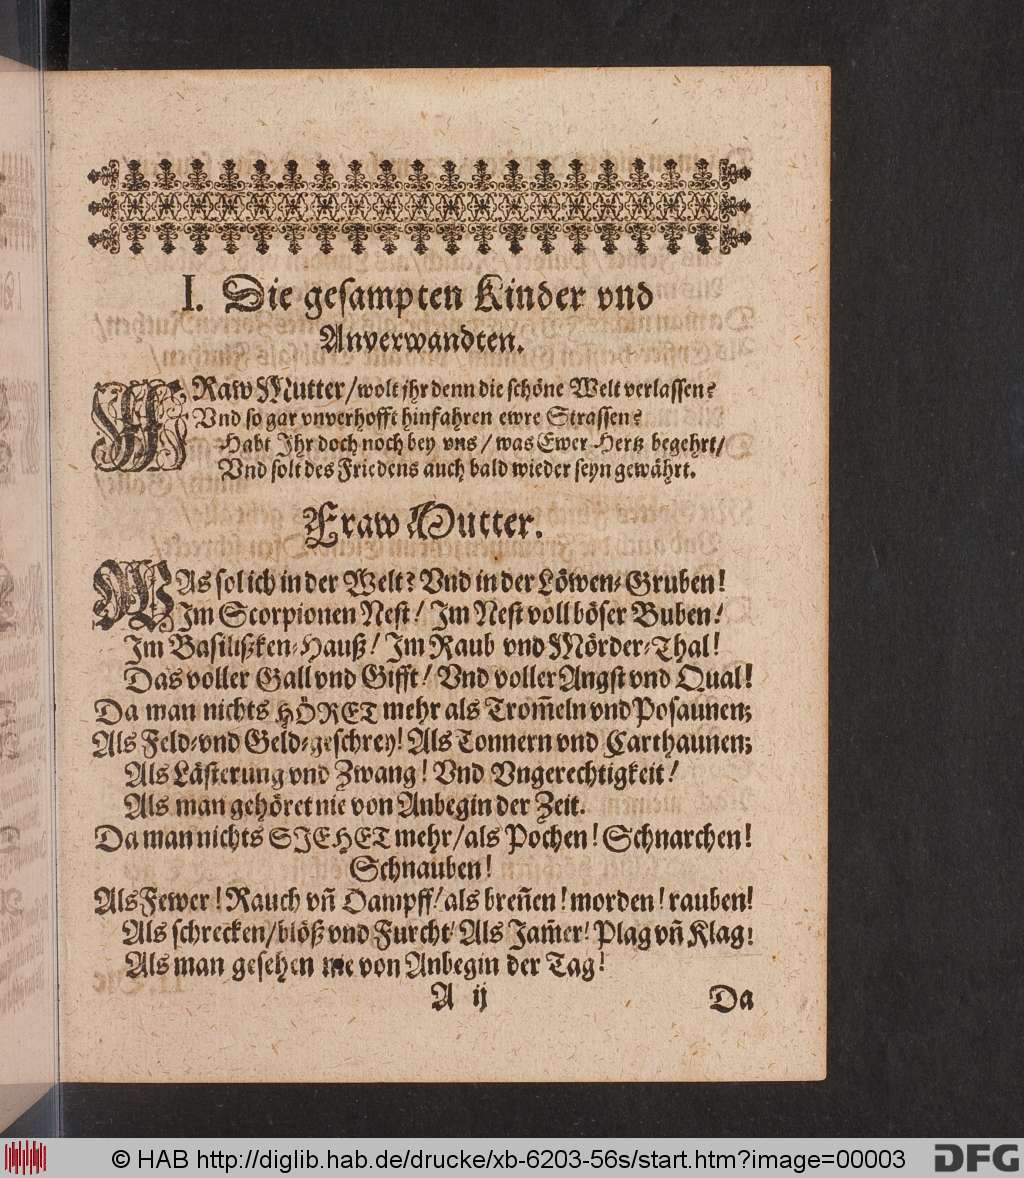 I. Die gesampten Kinder vnd
Anverwandten.
FRaw Mutter/wolt jhr denn die schöne Welt verlassen?
Vnd so gar vnverhofft hinfahren ewre Strassen?
Habt Jhr doch noch bey vns/was Ewer Hertz begehrt/
Vnd solt des Friedens auch bald wieder seyn gewährt.
Fraw Mutter.
WAs sol ich in der Welt? Vnd in der Löwen-Gruben!
Jm Scorpionen Nest! Jm Nest voll böser Buben!
Jm Basilißken-Hauß! Jm Raub vnd Mörder-Thal!
Das voller Gall vnd Gifft! Vnd voller Angst vnd Qual!
Da man nichts HÖRET mehr als Trom̃eln vnd Posaunen;
Als Feld-vnd Geld-geschrey! Als Tonnern vnd Carthaunen;
Als Lästerung vnd Zwang! Vnd Vngerechtigkeit!
Als man gehöret nie von Anbegin der Zeit.
Da man nichts SJEHET mehr/als Pochen! Schnarchen!
Schnauben!
Als Fewer! Rauch vñ Dampff! als breñen! morden! rauben!
Als schrecken/blöß vnd Furcht! Als Jam̃er! Plag vñ Klag!
Als man gesehen nie von Anbegin der Tag!
A ij Da
© HAB http://diglib.hab.de/drucke/xb-6203-56s/start.htm?image=00003 DFG